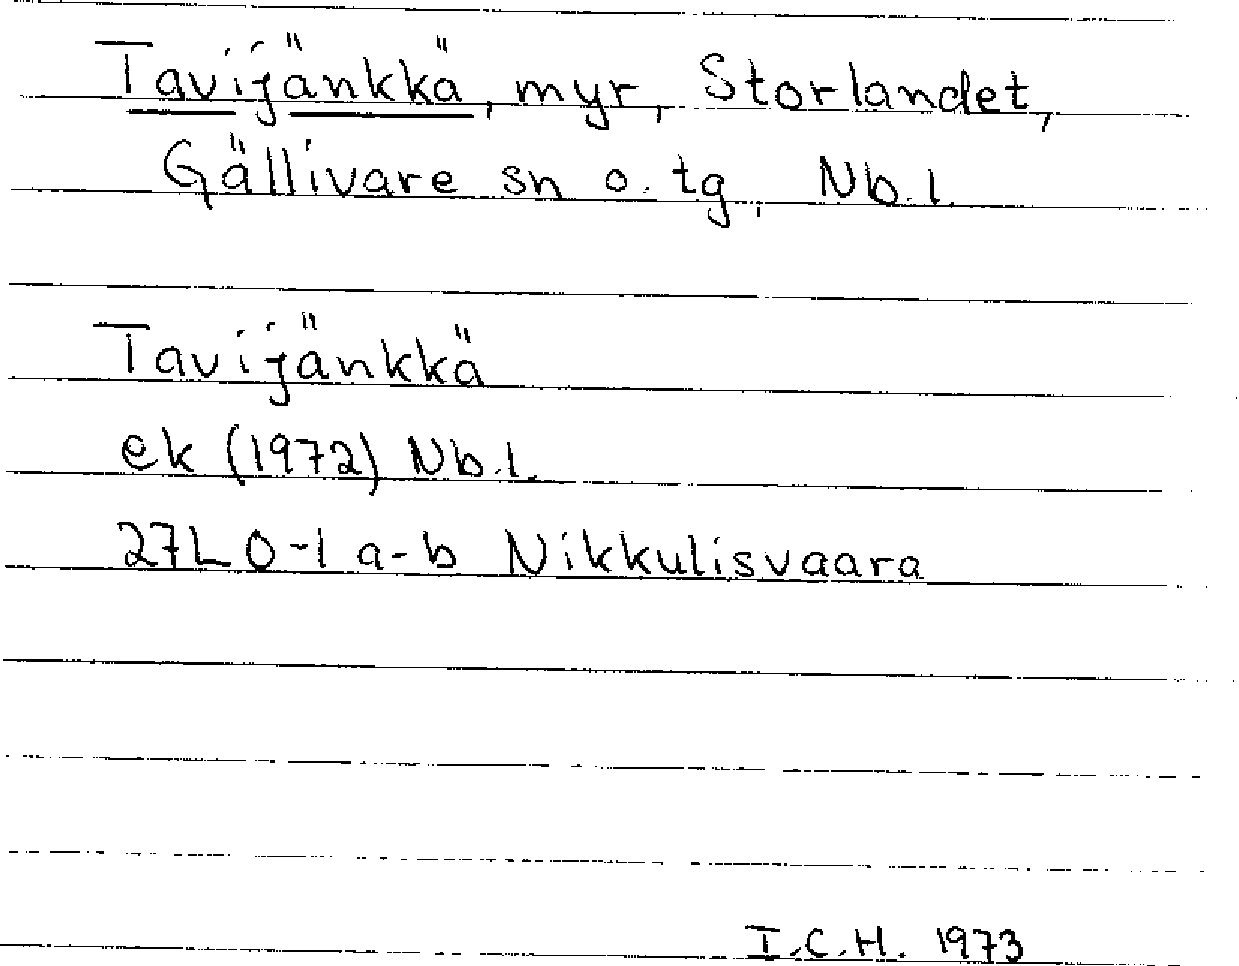 Tavijänkkä, myr, Storlandet,
Gällivare sn o. tg, Nb.l.
Tavijänkkä
ek (1972) Nb.l.
27L 0-1 a-b Nikkulisvaara
I.C.H. 1973